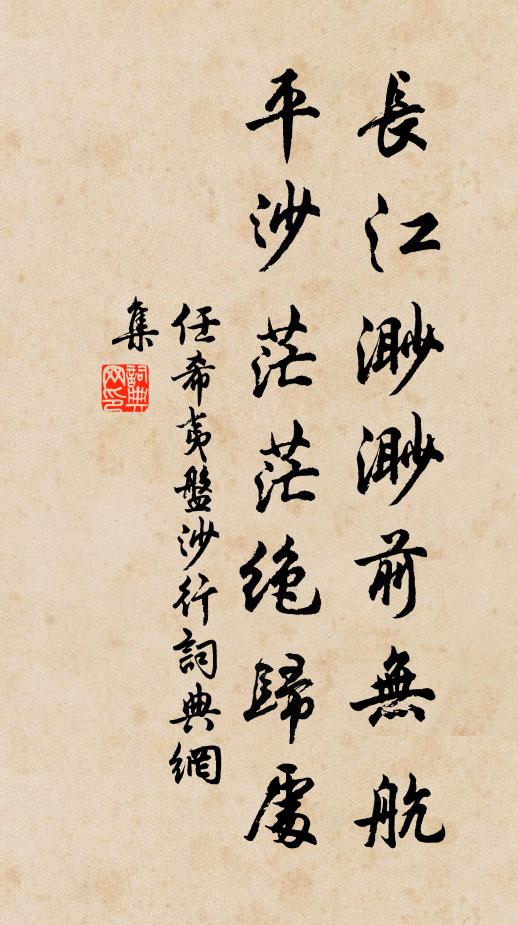 長江渺渺前無航
平沙茫茫絶歸處
任希夷盤沙行詞典網
集
詞典網印